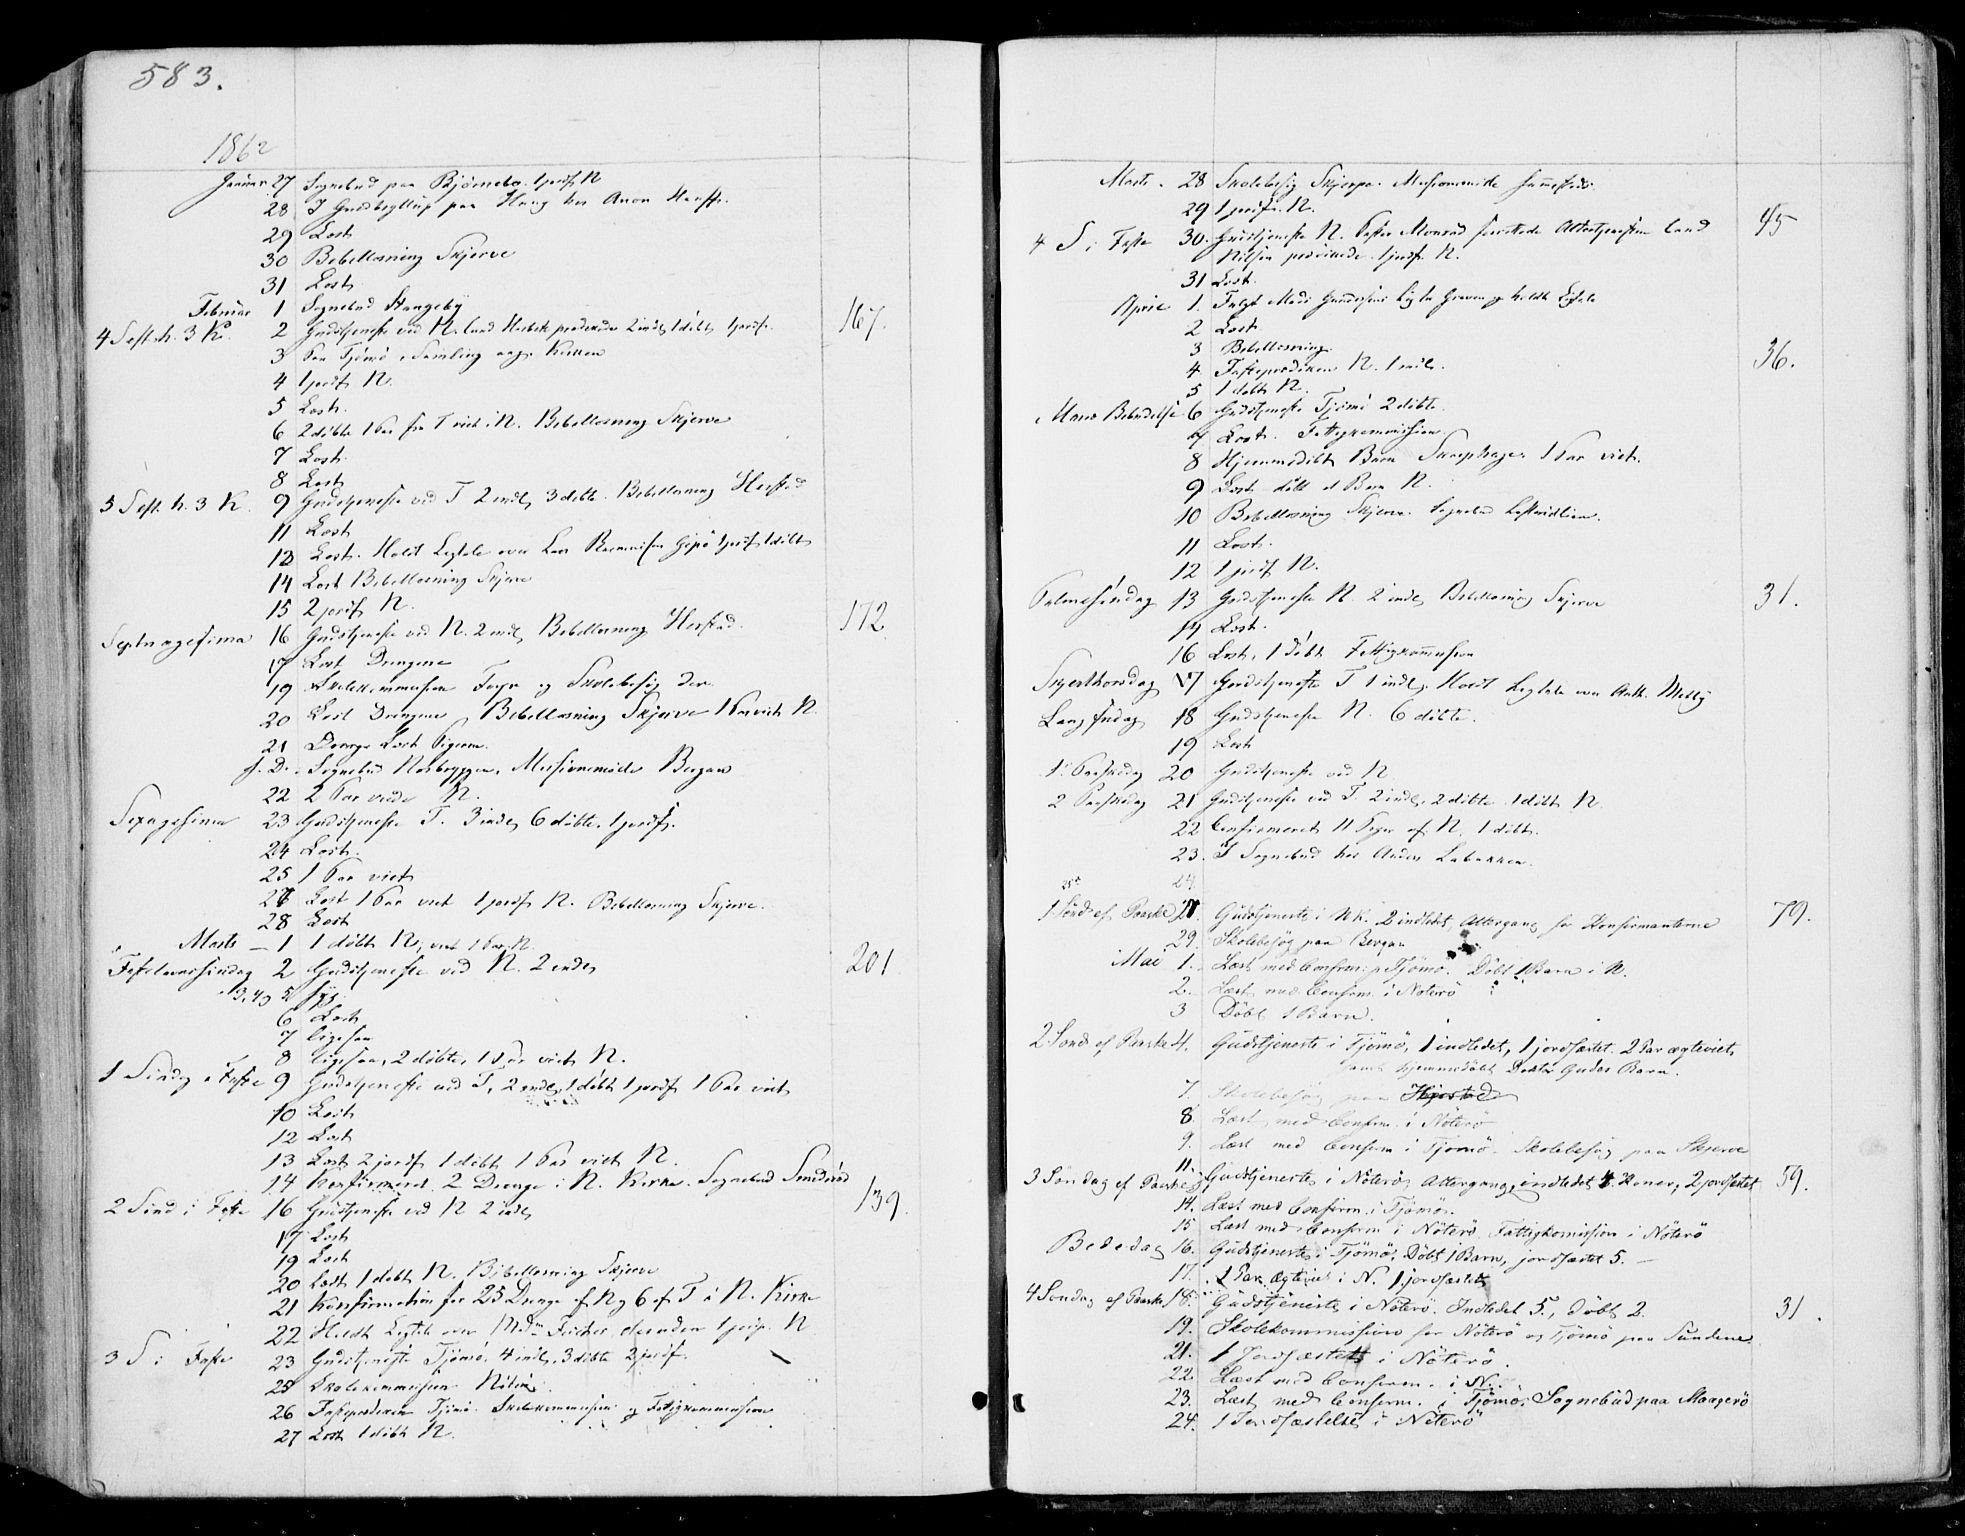 583.
1862
Januar 27 Sognebud paa Bjørnebo. 1 jordf. N
28 I Guldbryllup paa Haug hos
29 Læst
30 Bibellæsning Skjerve
31 Læst
Februar 1 Sognebud Stangeby
4 S. eft. h. 3 K. 2 Gudstjeneste ved N. Cand. prædikede 2 indl. 1 døbt 1 jordf. 167.
3 Paa Tjømø. Samling Kirken
4 1 jordf. N.
5 Læst.
6 2 døbte 1 Par fra T viet i N. Bibellæsning Skjerve
7 Læst.
8 Læst
5 S. eft. h. 3 K. 9 Gudstjeneste ved T 2 indl. 3 døbte. Bibellæsning Herstad
11 Læst
12 Læst. Holdt Ligtale over 1 jordf. 1 døbt
14 Læst Bibellæsning Skjerve
15 2 jordf. N.
Septuagesima 16 Gudstjeneste ved N. 2 indl. Bibellæsning Herstad. 172
17 Læst Drengene
19 Skolekommission og Skolebesøg
20 Læst Drengene Bibellæsning Skjerve 1 Par viet N.
21 Drenge Læst Pigerne.
S. D. Sognebud Missionsmøde Bergan
22 2 Par viede N.
Sexagesima 23 Gudstjeneste T. 3 indl. 6 døbte. 1 jordf.
24 Læst.
25 1 Par viet
27 Læst 1 Par viet 1 jordf. N. Bibellæsning Skjerve.
28 Læst
Marts – 1 1 døbt N, viet 1 Par N.
Fastelavnssøndag 2 Gudstjeneste ved N. 2 indl. 201
3, 4 og 5 syg.
6 Læst
7 ligesaa
8 ligesaa, 2 døbte, 1 Par viet N.
1 Søndag i Faste 9 Gudstjeneste ved T, 2 indl. 1 døbt 1 jordf. 1 Par viet
10 Læst
12 Læst
13 Læst 2 jordf. 1 døbt 1 Par viet N.
14 Konfirmeret 2 Drenge i N. Kirke. Sognebud Smidsrød
2 Sønd i Faste 16 Gudstjeneste ved N 2 indl. 139.
17 Læst
19 Læst
20 Læst 1 døbt N. Bibellæsning Skjerve
21 Konfirmation for 25 Drenge af N og 6 af T i N. Kirke
22 Holdt Ligtale over desuden 1 jordf. N
3 S i Faste 23 Gudstjeneste Tjømø. 4 indl. 3 døbte 2 jordf.
25 Skolekommission Nøterø
26 Fasteprædiken Tjømø. Skolekommission og Fattigkommission
27 Læst 1 døbt N.
Marts. 28 Skolebesøg Skjerpe. Missionsmøde
29 1 jordf. N.
4 S i Faste 30. Gudstjeneste N. Pastor Monrad forrettede Altertjenesten Cand 45
Nilsen prædikede. 1 jordf. N.
31 Læst
April 1. Fulgt Lig til Graven og holdt Ligtale
2 Læst
3 Bibellæsning
4. Fasteprædiken N. 1 indl. 36.
5 1 døbt N.
Mariæ Bebudelse 6 Gudstjeneste Tjømø 2 døbte.
7 Læst. Fattigkommission.
8 Hjemmedøbt Barn 1 Par viet.
9 Læst døbt et Barn N.
10 Bibellæsning Skjerve. Sognebud
11 Læst.
12 1 jordf. N.
Palmesøndag 13 Gudstjeneste N. 2 indl. Bibellæsning Skjerve 31.
14 Læst.
16 Læst, 1 døbt Fattigkommission
Skjærthorsdag 17 Gudstjeneste T 1 indl. Holdt Ligtale over
Langfredag 18 Gudstjeneste N. 6 døbte.
19 Læst
1. Paaskedag 20 Gudstjeneste ved N
2 Paaskedag 21 Gudstjeneste ved T. 2 indl. 2 døbte 1 døbt N.
22 Confirmeret 11 Piger af N. 1 døbt.
23. I Sognebud hos Anders
24
1 Sønd. ef. Paaske 27. Gudstjeneste i N K. 2 indledet, Altergang for Konfirmanterne 79.
29. Skolebesøg paa Bergan
Mai 1. Læst med Confirm. p. Tjømø. Døbt 1 Barn i N.
2. Læst med Confirm. i Nøterø
3 Døbt 1 Barn.
2 Sønd ef Paaske 4. Gudstjeneste i Tjømø, 1 indledet, 1 jordfæstet. 2 Par ægteviet,
samt hjemmedøbt Doktor Gudes Barn.
7. Skolebesøg paa Hjerstad
8. Læst med Confirm. i Nøterø
9. Læst med Confirm i Tjømø. Skolebesøg paa Skjerve
3 Søndag ef Paaske 11. Gudstjeneste i Nøterø, Altergang, indledet 4 Koner, 2 jordfæstet 59.
14. Læst med Confirm. i Tjømø.
15 Læst med Confirm i Nøterø. Fattigkomission i Nøterø
Bededag 16. Gudstjeneste i Tjømø. Døbt 1 Barn, jordfæstet 5. –
17. 1 Par Ægteviet i N. 1 jordfæstet
4 Søndag ef Paaske 18. Gudstjeneste i Nøterø. Indledet 5., Døbt 2. 31.
19. Skolekommission for Nøterø og Tjømø paa Sundene
21. 1 Jordfæstet i Nøterø.
22. Læst med Confirm. i N.
23. Læst med Confirm. i Tjømø, Sognebud paa Maagerø
24. 1 Jordfæstelse i Nøterø